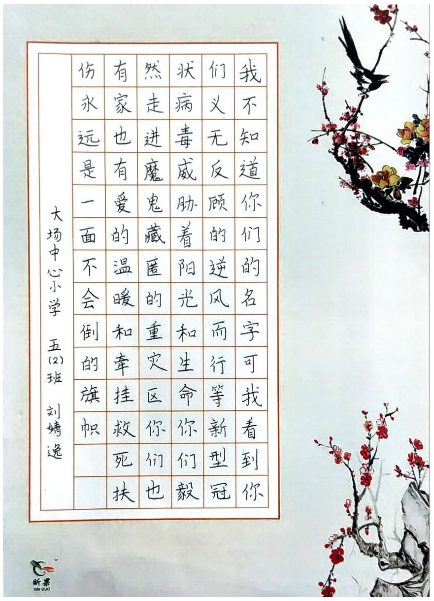 我不知道你们的名字可我看到你
们义无反顾的逆风而行等新型冠
状病毒威胁着阳光和生命你们毅
然走进魔鬼藏匿的重灾区你们也
有家也有爱的温暖和牵挂救死扶
伤永远是一面不会倒的旗帜
大场中心小学 五(2)班 刘婧逸
昕果
XIN GUO